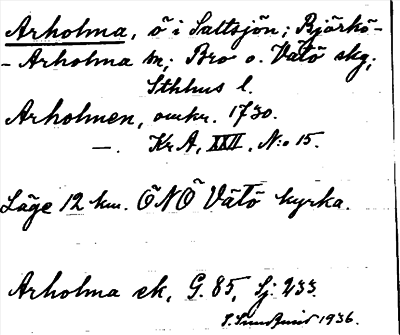 Arholma, ö i Saltsjön; Björkö-
- Arholma sn; Bro o. Vätö skg;
Sthlms l.
Arholmen, omkr. 1730.
—. KrA, XXII, N:o 15.
Läge 12 km. ÖNÖ Vätö kyrka.
Arholma ek, G. 85, Sj. 233.
S. Sundqvist 1936.